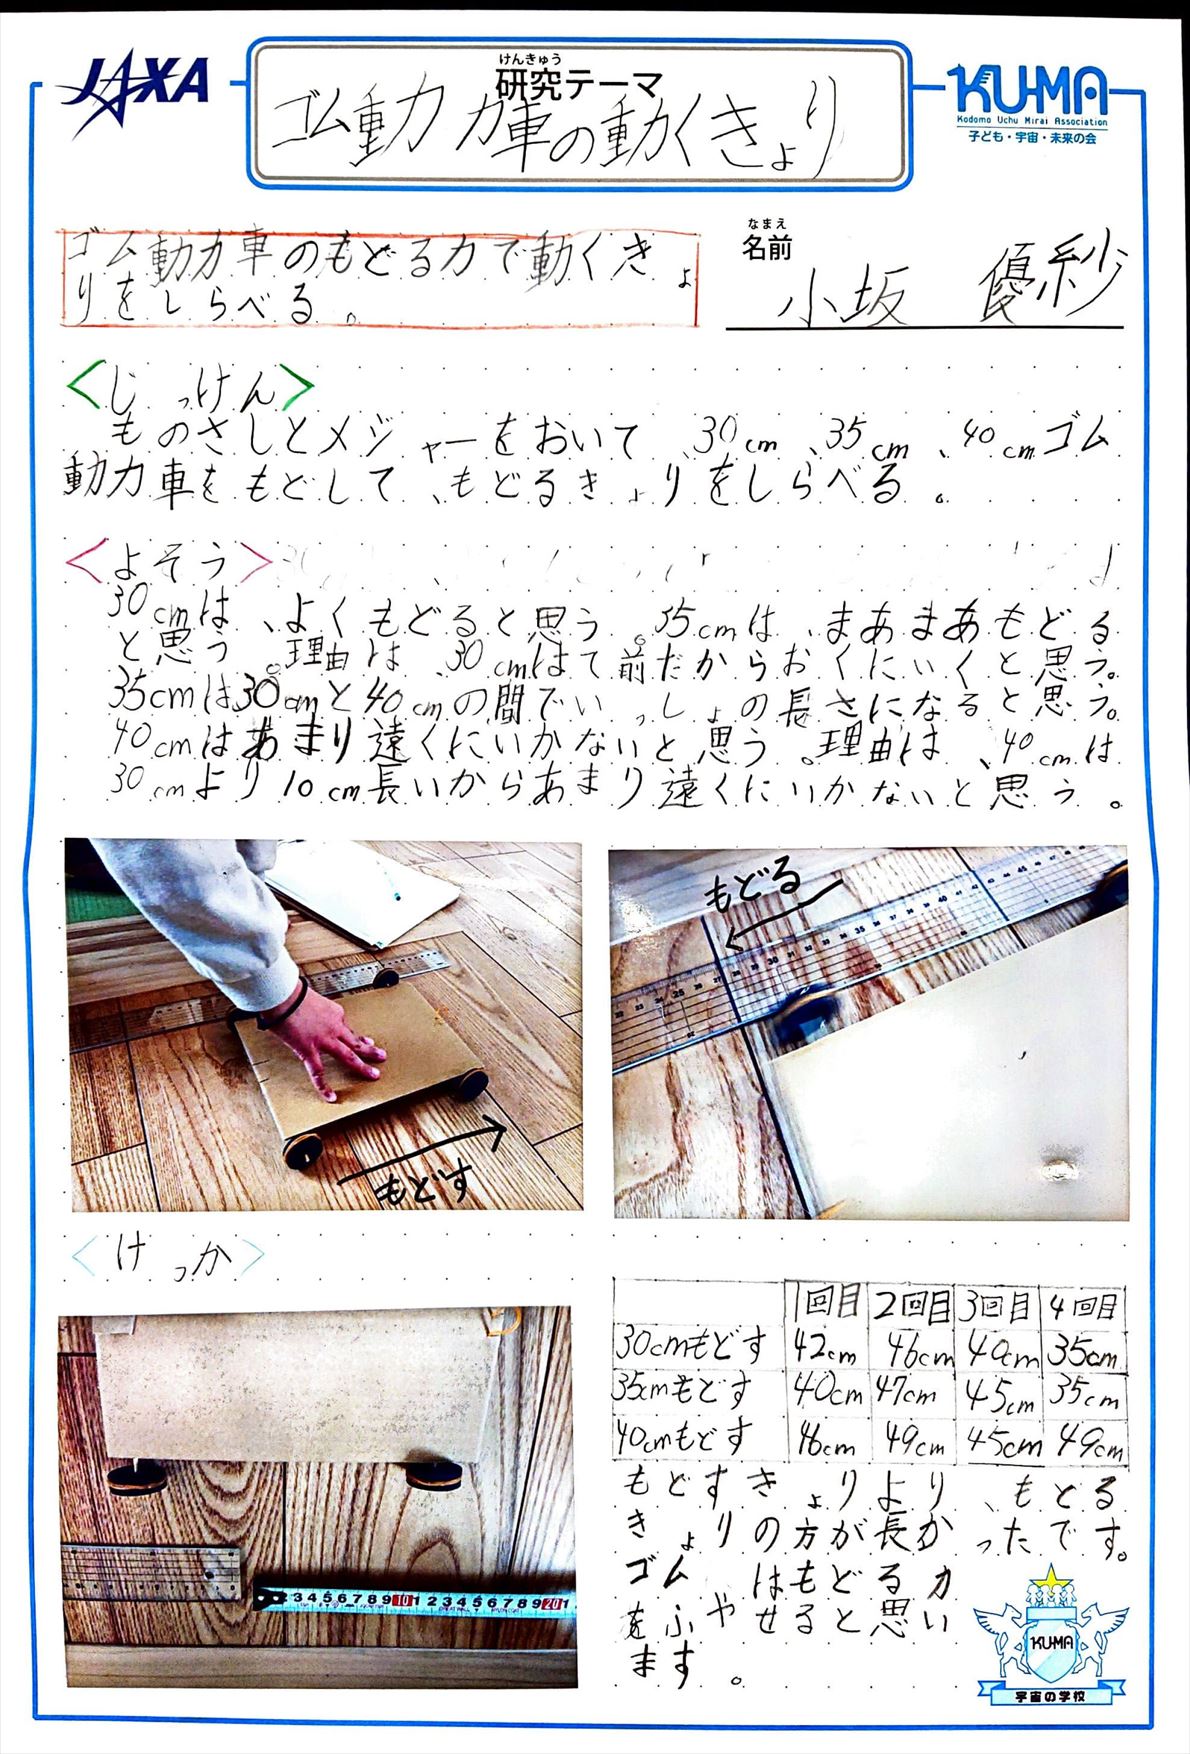 JAXA
けんきゅう
研究テーマ
ゴム動力車の動くきょり
KU-MA
Kodomo Uchu Mirai Association
子ども・宇宙・未来の会
ゴム動力車のもどる力で動くきょ
りをしらべる。
なまえ
名前
小坂 優紗
<じっけん>
ものさしとメジャーをおいて、30cm、35cm、40cmゴム
動力車をもどして、もどるきょりをしらべる。
<よそう>
30cmは、よくもどると思う。35cmは、まあまあもどる
と思う。理由は、30cmはて前だからおくにいくと思う。
35cmは30cmと40cmの間でいっしょの長さになると思う。
40cmはあまり遠くにいかないと思う。理由は、40cmは
30cmより10cm長いからあまり遠くにいかないと思う。
もどす
もどる
<けっか>
1回目 2回目 3回目 4回目
30cmもどす 42cm 46cm 40cm 35cm
35cmもどす 40cm 47cm 45cm 35cm
40cmもどす 46cm 49cm 45cm 49cm
もどすきょりより、もどる
きょりの方が長かったです。
ゴムはもどる力
をふやせると思い
ます。
KU-MA
宇宙の学校